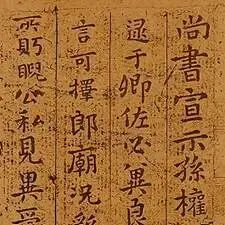 尚書宣示孫權
逮于卿佐必冀良
言可擇郎廟況
所虧覬公私見異